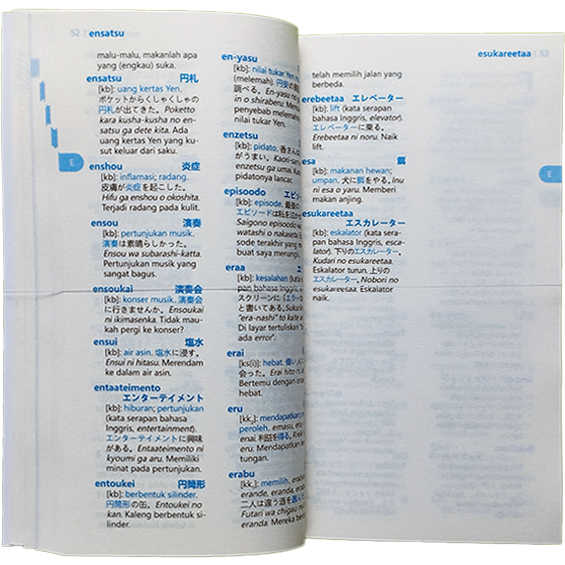 52 | ensatsu
malu-malu, makanlah apa
yang (engkau) suka.
ensatsu 円札
[kb]: uang kertas Yen.
ポケットからくしゃくしゃの
円札が出てきた。Poketto
kara kusha-kusha no en-
satsu ga dete kita. Ada
uang kertas Yen yang ku-
sut keluar dari saku.
E
enshou 炎症
[kb]: inflamasi; radang.
皮膚が炎症を起こした。
Hifu ga enshou o okoshita.
Terjadi radang pada kulit.
ensou 演奏
[kb]: pertunjukan musik.
演奏は素晴らしかった。
Ensou wa subarashi-katta.
Pertunjukan musik yang
sangat bagus.
ensoukai 演奏会
[kb]: konser musik. 演奏会
に行きませんか。Ensoukai
ni ikimasenka. Tidak mau-
kah pergi ke konser?
ensui 塩水
[kb]: air asin. 塩水に浸す。
Ensui ni hitasu. Merendam
ke dalam air asin.
entaateimento
エンターテイメント
[kb]: hiburan; pertunjukan
(kata serapan bahasa
Inggris, entertainment).
エンターテイメントに興味
がある。Entaateimento ni
kyoumi ga aru. Memiliki
minat pada pertunjukan.
entoukei 円筒形
[kb]: berbentuk silinder.
円筒形の缶。Entoukei no
kan. Kaleng berbentuk si-
linder.
en-yasu
[kb]: nilai tukar Yen
(melemah). 円安の
調べる。En-yasu no
in o shiraberu. Men
penyebab melemahn
nilai tukar Yen.
enzetsu
[kb]: pidato. 香さん
がうまい。Kaori-san
enzetsu ga umai. Ka
pidatonya lancar.
episoodo エピソ
[kb]: episode. 最後の
エピソードは私を泣か
Saigo no episoodo w
watashi o nakaseta. E
sode terakhir yang m
buat saya menangis.
eraa エ
[kb]: kesalahan (kata
pan bahasa Inggris,
スクリーンに「エラー
と書いてある。Sukurii
"era-nashi" to kaite a
Di layar tertuliskan "t
ada error".
erai
[ks(i)]: hebat. 偉い人
会った。Erai hito ni a
Bertemu dengan oran
hebat.
eru
[kk,]: mendapatkan;
peroleh. emasu, eta
enai. 利益を得る。Riek
eru. Mendapatkan
tungan.
erabu
[kk,]: memilih. erabi
erande, eranda, era
二人は違う道を選んだ
Futari wa chigau mi
eranda. Mereka ber
esukareetaa | 53
telah memilih jalan yang
berbeda.
erebeetaa エレベーター
[kb]: lift (kata serapan
bahasa Inggris, elevator).
エレベーターに乗る。
Erebeetaa ni noru. Naik
lift.
esa 餌
[kb]: makanan hewan;
umpan. 犬に餌をやる。Inu
ni esa o yaru. Memberi
makan anjing.
E
esukareetaa
エスカレーター
[kb]: eskalator (kata sera-
pan bahasa Inggris, esca-
lator). 下りのエスカレーター。
Kudari no esukareetaa.
Eskalator turun. 上りの
エスカレーター。Nobori no
esukareetaa. Eskalator
naik.